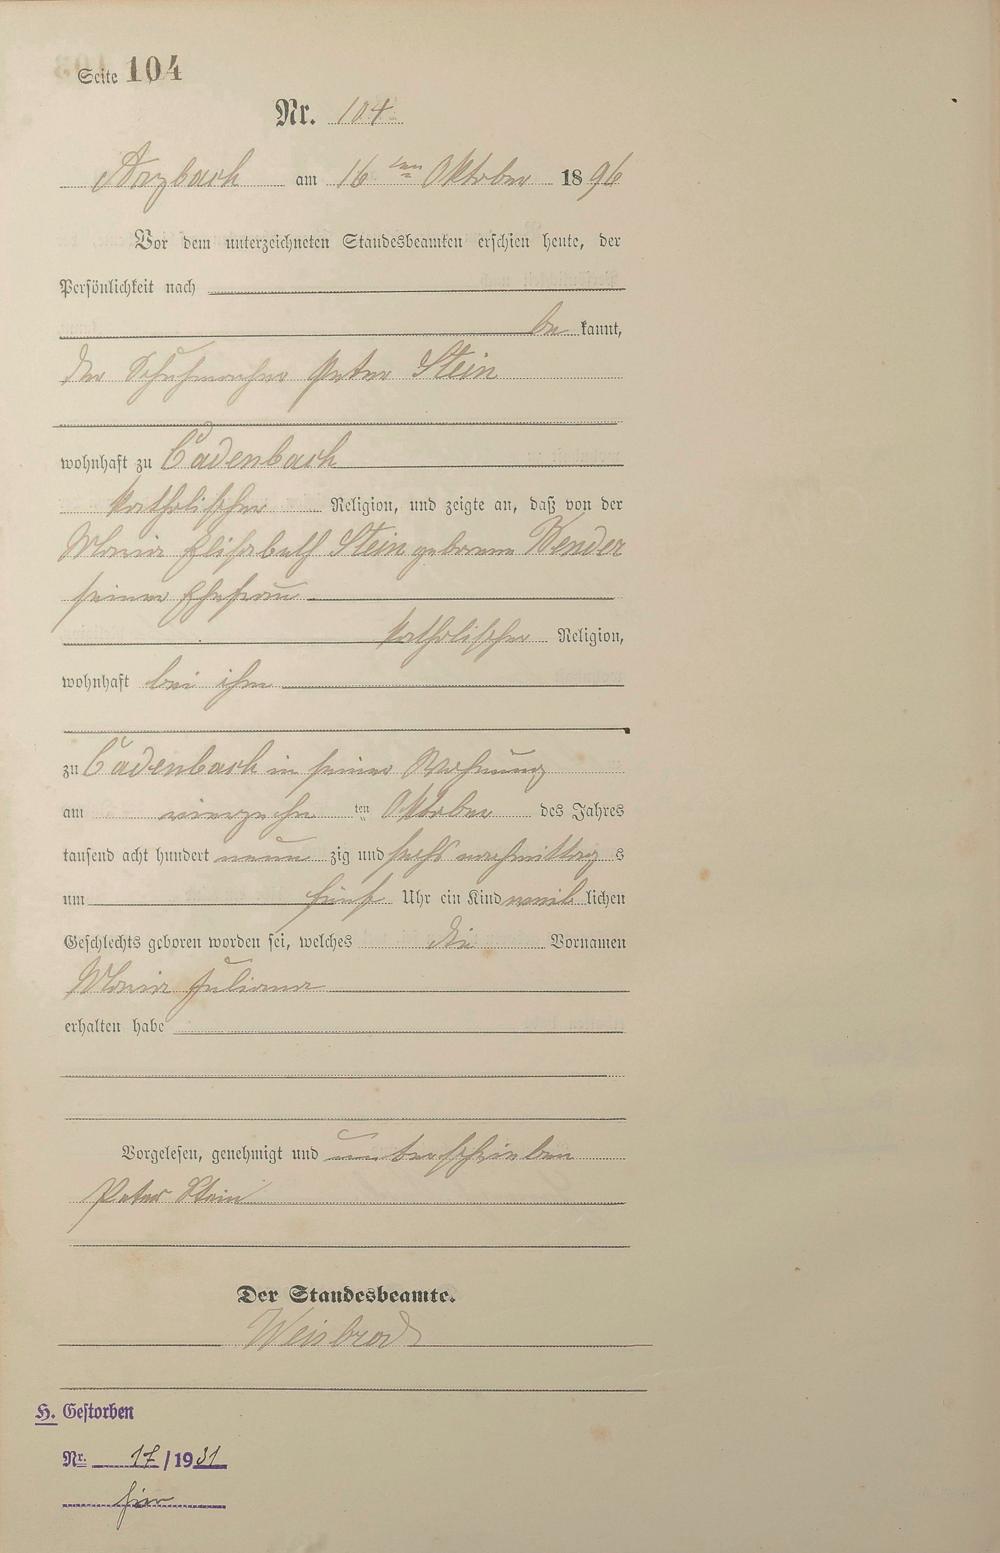 Seite 104
Nr. 104
Arzbach am 16 ten Oktober 1896
Vor dem unterzeichneten Standesbeamten erschien heute, der
Persönlichkeit nach
be kannt,
der Schuhmacher Peter Stein
wohnhaft zu Cadenbach
katholischer Religion, und zeigte an, daß von der
Maria Elisabeth Stein geborene Wender
seiner Ehefrau
katholischer Religion,
wohnhaft bei ihm
zu Cadenbach in seiner Wohnung
am vierzehn ten Oktober des Jahres
tausend acht hundert neun zig und sechs nachmittag s
um fünf Uhr ein Kind weib lichen
Geschlechts geboren worden sei, welches die Vornamen
Maria Juliana
erhalten habe
Vorgelesen, genehmigt und unterschrieben
Peter Stein
Der Standesbeamte.
Weisbrod
H. Gestorben
Nr. 17/1931
hier